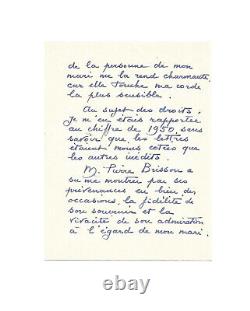 de la personne de mon
mari me la rend charmante,
car elle touche ma corde
la plus sensible.
Au sujet des droits.
Je m'en étais rapportée
au chiffre de 1950, sans
savoir que les lettres
étaient moins cotées que
les autres inédits.
M. Pierre Brisson a
su me montrer par ses
prévenances en bien des
occasions, la fidélité de
son souvenir et la
vivacité de son admiration
à l'égard de mon mari.
ebay.com